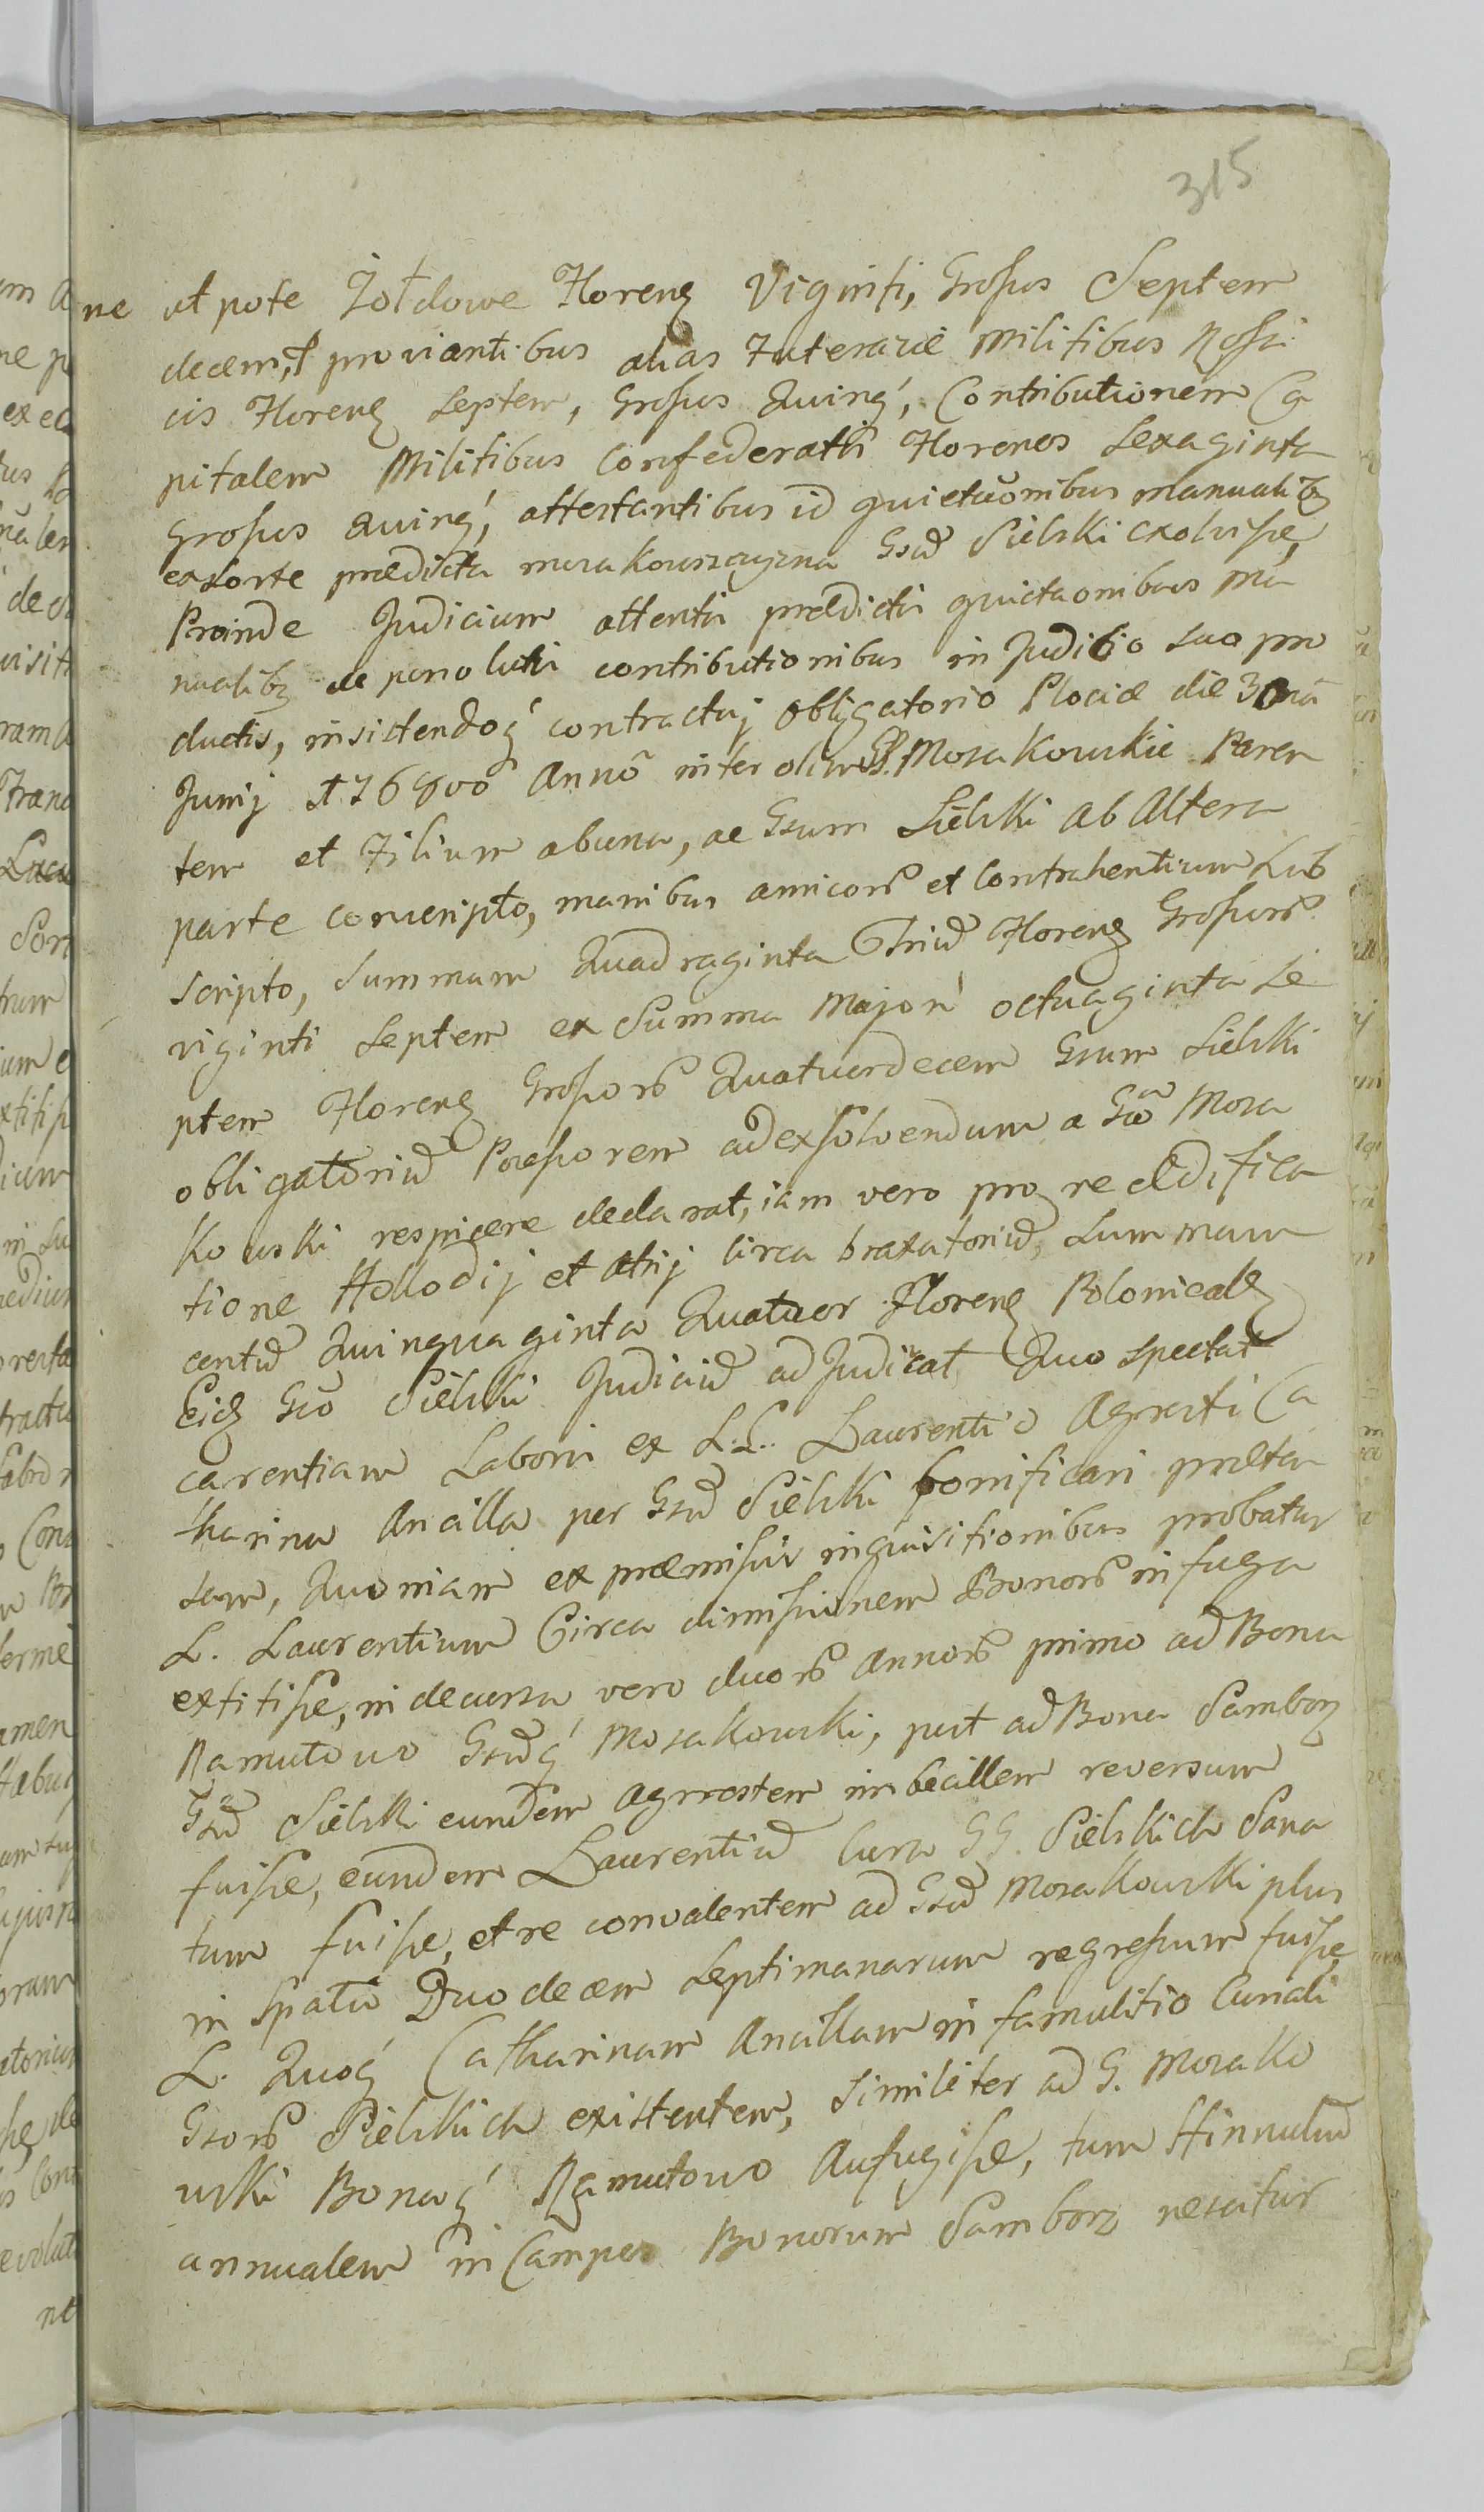 315
ne utpote Żołdowe Florenɋ Viginti, Grossus Septem
decem, t proviantibus alias Futeraze Militibus Rossi
cis Florenɋ Septem, Grossus Quinq́, Contributionem Ca
pitalem Militibus Confederatis Florenos Sexaginta
Grossus Quinq́, attestantibus id quietaōnibus manualibɋ
ex sorte prædicta Mozakowszczyzna Gsū Sielski exolvisse,
Proinde Judicium attentis prædictis quietaōnibus ma
nualibɋ de persolutis contributionibus in Judicio suo pro
ductis, insistendoq́ contractuj obligatorio Plociæ die 30ma
Junij 1768vo Anno inter olim GG. Mozakowskie Paren
tem et Filium ab una, ac Gsum Sielski ab Altera
parte conscripto, manibus amicorū et Contrahentium Sub
scripto, Summam Quadraginta Triū Florenɋ Grossorū
viginti Septem ex Summa Majori octuaginta Se
ptem Florenɋ Grossorū Quatuordecem Gsum Sielski
obligatoriū Possessorem ad exsolvendum a Gso Moza
kowski respicere declarat, iam vero pro reædifica
tione Hollodij et Atrij circa braxatoriū, Summam
centū Quinquaginta Quatuor Florenɋ Polonicalɋ
Eidɋ Gso Sielski Judiciū adjudicat Quo spectat
carentiam Laboris ex L.L. Laurentio Agresti Ca
tharina Ancilla per Gsū Sielski bonificari præten
sam, Quoniam ex præmissis inquisitionibus probatur
L. Laurentium Circa dimissionem Bonorū in fuga
extitisse, in decursu vero duorū Annorū primo ad Bona
Ramutowo Gsūq́ Mozakowski, post ad Bona Samborz
Gsū Sielski eundem Agrestem imbecillem reversum
fuisse, eundem Laurentiū Cura GG. Sielskich Sana
tum fuisse, et reconvalentem ad Gsū Mozakowski plus
in Spatio Duodecem Septimanarum regressum fuisse,
L. Quoq́ Catharinam Ancillam in famulitio Curiali
Gsorū Sielskich existentem, Similiter ad G. Mozako
wski Bonaq́ Ramutowo Aufugisse, tum Hinnulū
annualem in Campos Bonorum Samborz nescitur